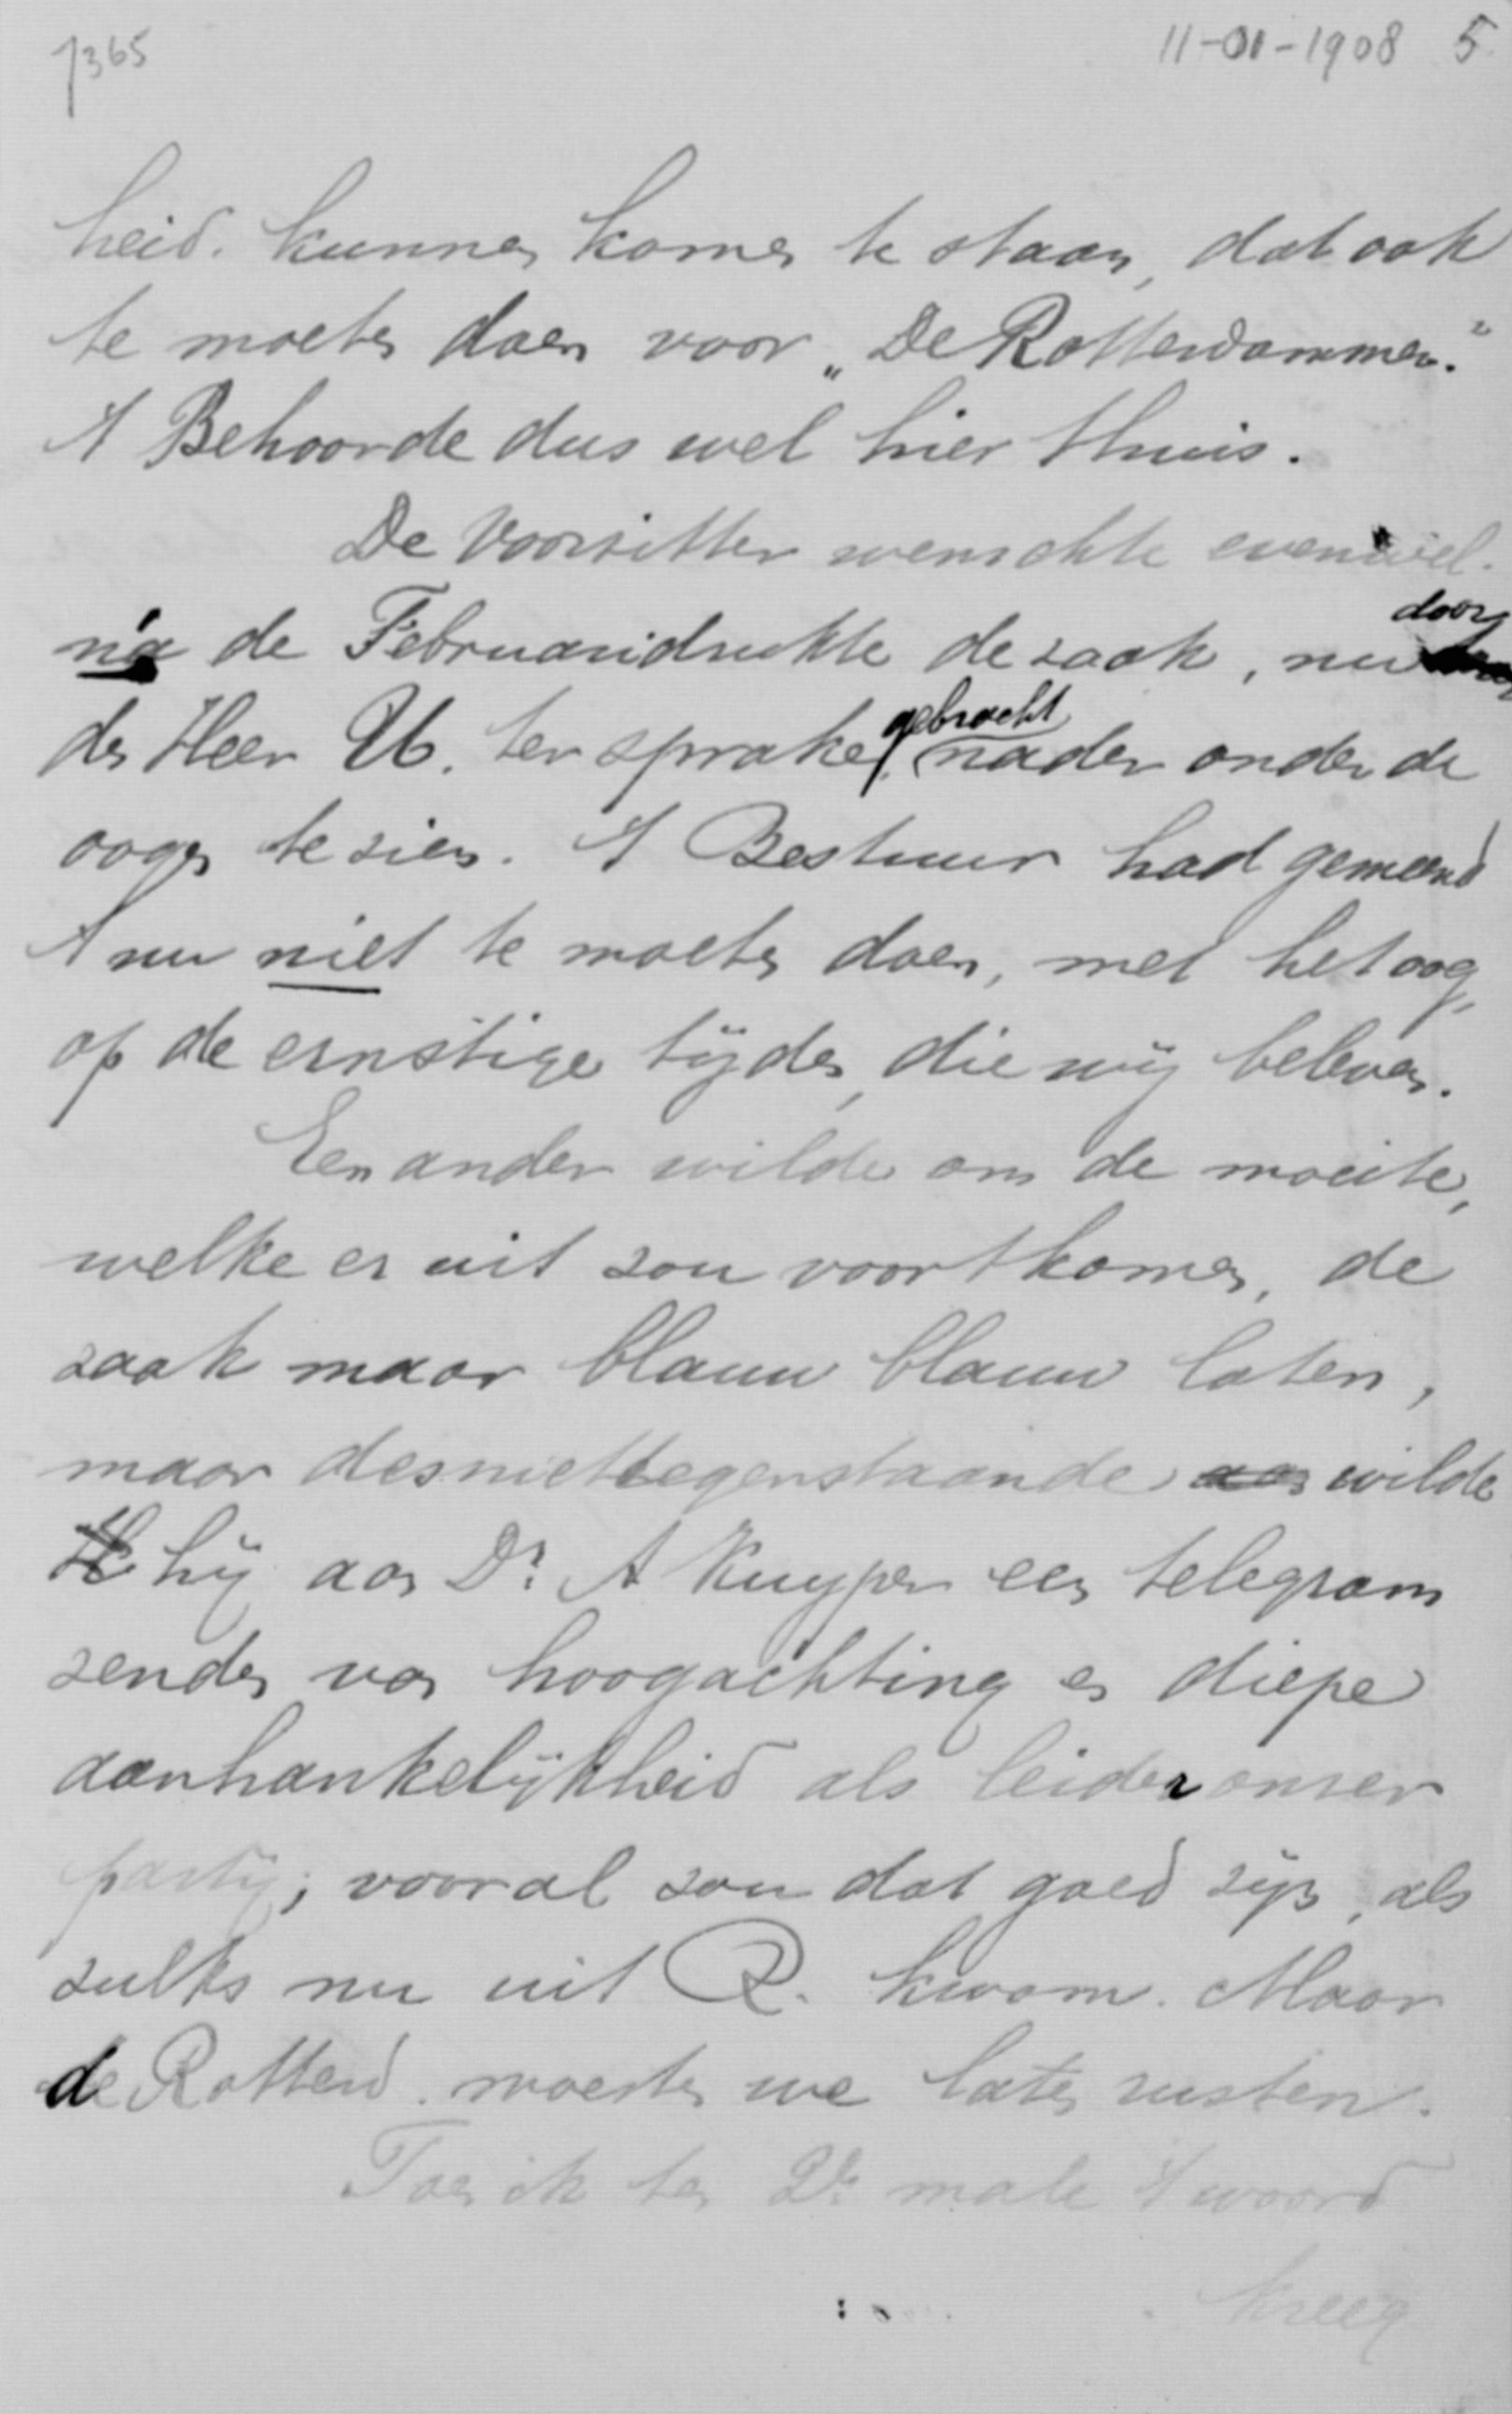 7365 11-01-1908 5
heid. kunnen komen te staan, dat ook
te moeten doen voor „De Rotterdammer."
't Behoorde dus wel hier thuis.
De Voorzitter wenschte evenwel.
ná de Februaridrukte de zaak, nu door
den Heer U. ter sprake gebracht nader onder de
oogen te zien. 't Bestuur had gemeend
't nu niet te moeten doen, met het oog,
op de ernstige tijden, die wij beleven.
Een ander wilde om de moeite,
welke er uit zou voortkomen, de
zaak maar blauw blauw laten,
maar desniettegenstaande wilde
hij aan Dr. A Kuyper een telegram
zenden van hoogachting en diepe
aanhankelijkheid als leider onzer
partij; vooral zou dat goed zijn, als
zulks nu uit R. kwam. Maar
de Rotterd. moesten we laten rusten.
Toen ik ten 2e male 't woord
kreeg